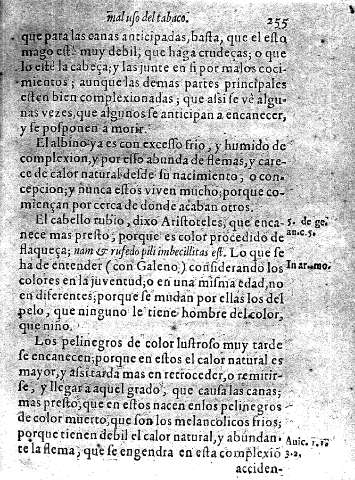 mal uso del tabaco. 255
que para las canas anticipadas, basta, que el esto
mago esté muy debil, que haga crudeças; o que
lo esté la cabeça; y las junte en si por malos coci-
mientos; aunque las demas partes principales
esten bien complexionadas; que assi se vè algu-
nas vezes, que algunos se anticipan a encanecer,
y se posponen a morir.
El albino ya es con excesso frio, y humido de
complexion, y por esso abunda de flemas, y care-
ce de calor natural desde su nacimiento, o con-
cepcion; y nunca estos viven mucho; porque co-
miençan por cerca de donde acaban otros.
El cabello rubio, dixo Aristoteles, que enca
nece mas presto, porque es color procedido de
flaqueça; nam & rufedo pili imbecillitas est. Lo que se
ha de entender (con Galeno) considerando los
colores en la juventud, o en una misma edad, no
en diferentes; porque se mudan por ellas los del
pelo, que ninguno le tiene hombre del color,
que niño.
Los pelinegros de color lustroso muy tarde
se encanecen; porque en estos el calor natural es
mayor, y assi tarda mas en retroceder, o remitir-
se, y llegar a aquel grado, que causa las canas;
mas presto, que en estos nacen en los pelinegros
de color muerto, que son los melancolicos frios;
porque tienen debil el calor natural, y abundan-
te la flema, que se engendra en esta complexiõ
acciden-
5. de ge.
an. c. 5.
In ar. mo.
Avic. 1. 1ª
3. 2.